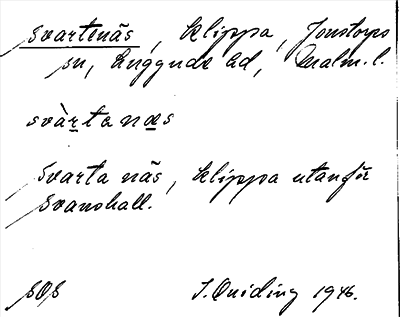 Svartenäs, klippa, Jonstorps
sn, Luggude hd, Malm. l.
svàrta næs
Svarta näs, klippa utanför
Svanshall.
SOS I. Quiding 1946.